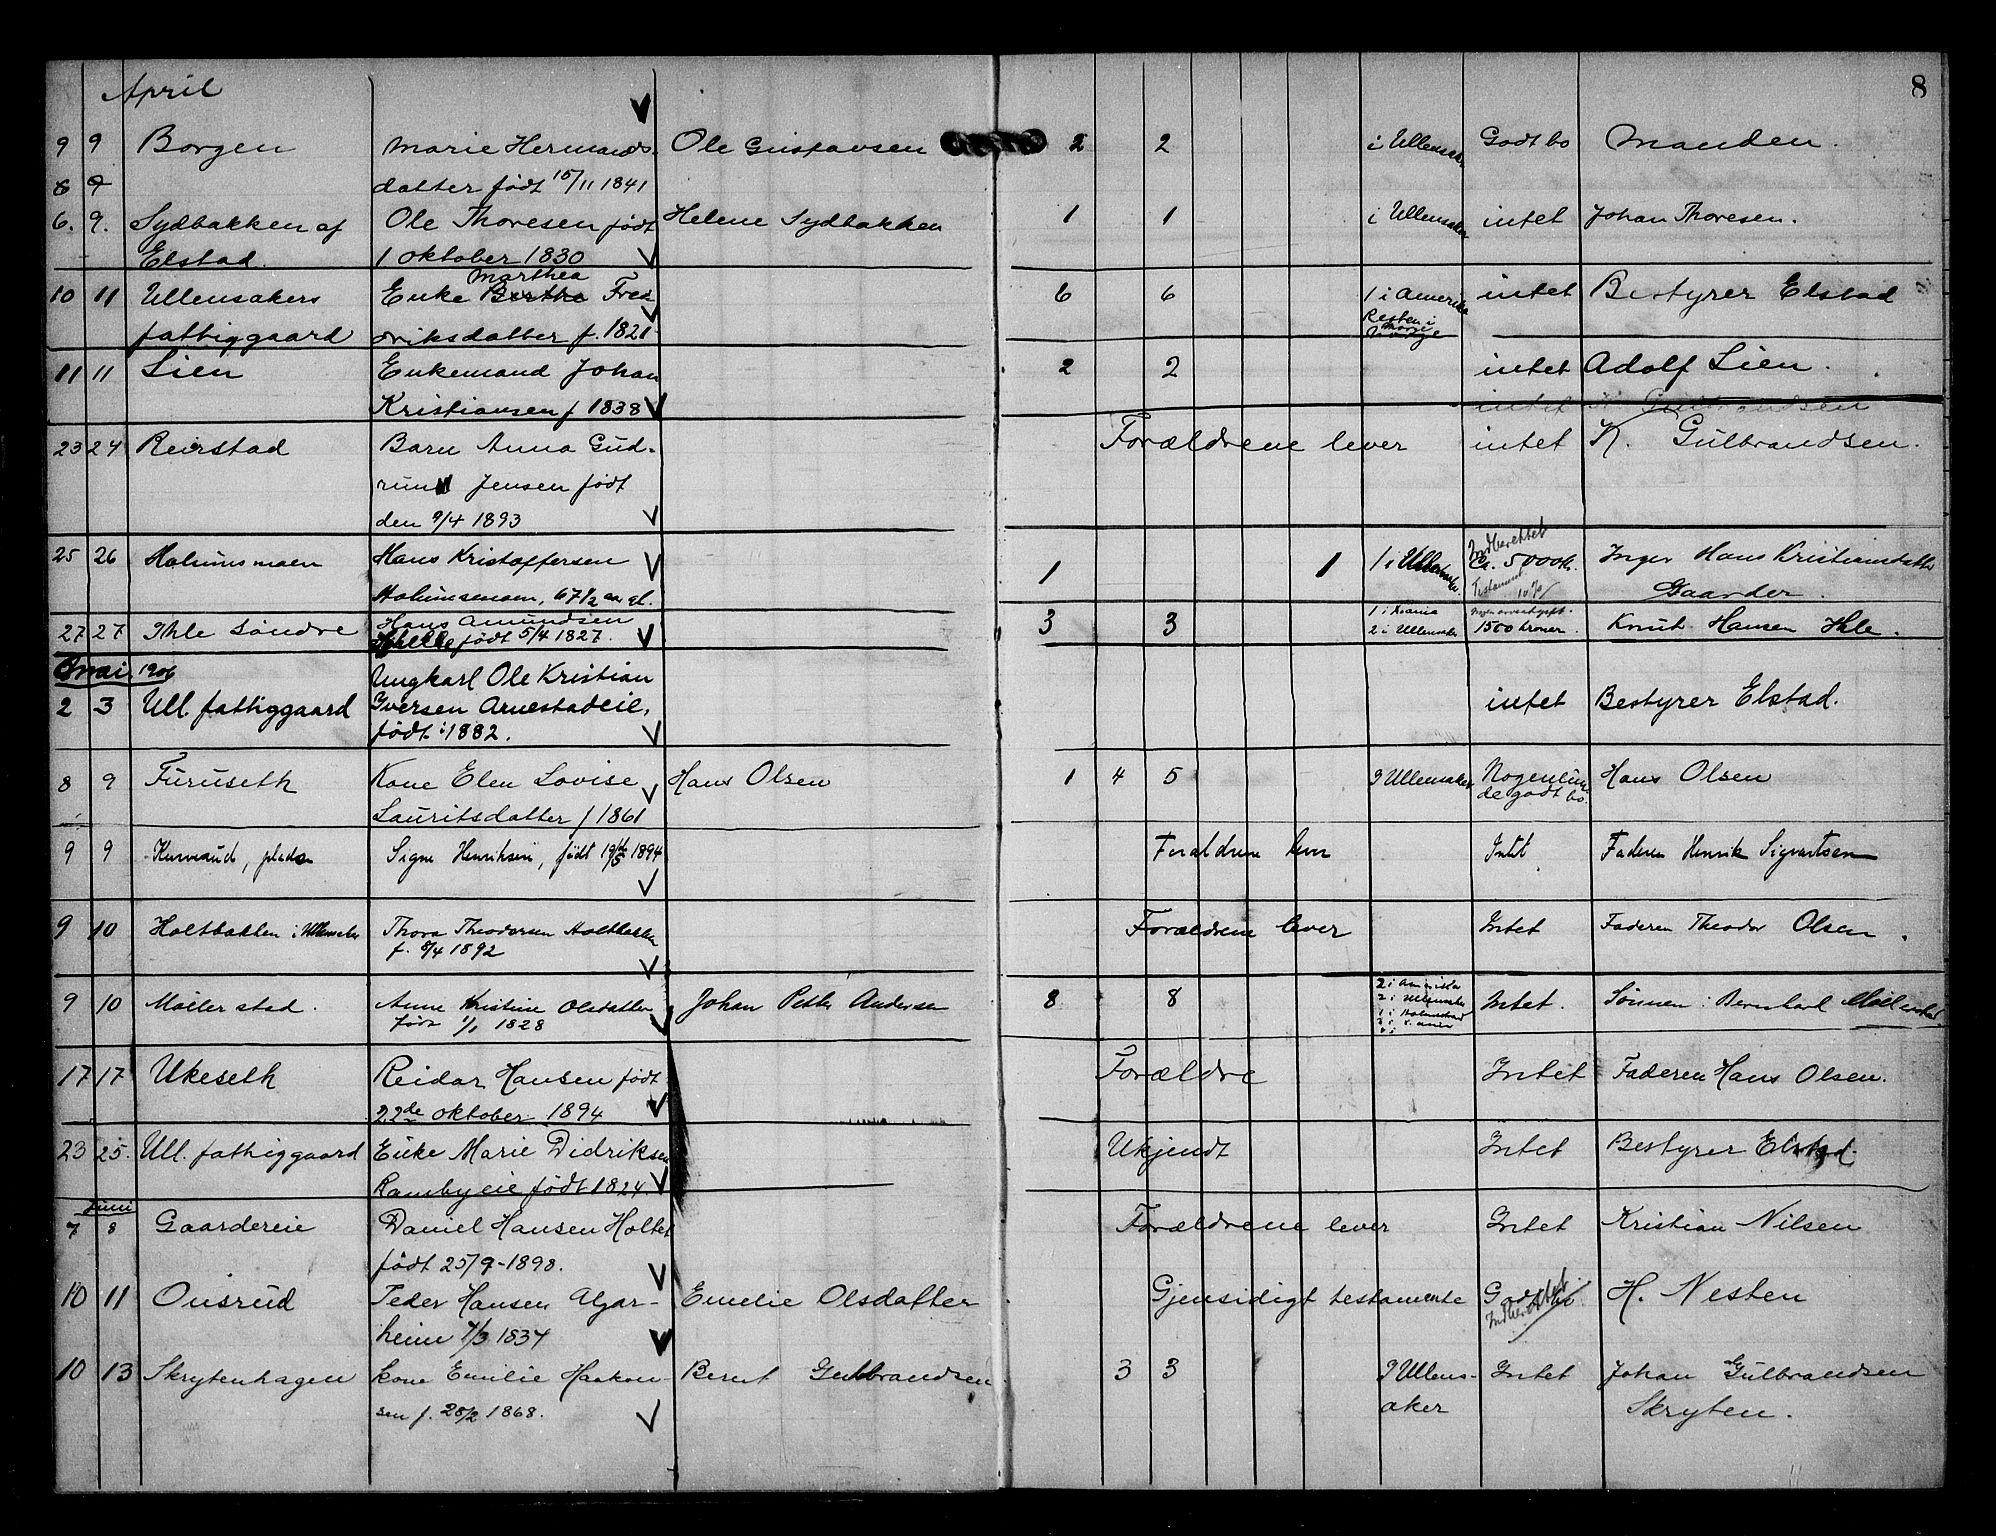 8
April
9 9 Borgen Marie Hermands- Ole Gustavsen 2 2 i Ullensaker Godt bo Manden.
8 9 datter født 15/11 1841
6. 9. Sydbakken af Ole Thoresen født Helene Sydbakken 1 1 i Ullensaker intet Johan Thoresen.
Elstad. 1 oktober 1830
Marthea
10 11 Ullensakers Enke Berthe Fred 6 6 1 i Amerika intet Bestyrer Elstad
Resten i
fattiggaard riksdatter f. 1821 Norge
11 11 Lien Enkemand Johan 2 2 intet Adolf Lien.
Kristiansen f 1838
intet K. Gulbrandsen
23 24 Reirstad Barn Anna Gud- Forældrene lever intet K. Gulbrandsen.
run Jensen født
den 9/4 1893
Indberettet
25 26 Holumsmoen Hans Kristoffersen 1 1 1 i Ullensaker Ca. 5000 kr. Inger Hans Kristiansdatter
Holumsmoen, 67 1/2 aar gl. Testament 10% Gaarder.
Hans Amundsen 1 i Krania
27 27 Ihle Søndre født 5/4 1827. 3 3 2 i Ullensaker 1500 kroner. Knut Hansen Ihle.
Mai 1906
Ungkarl Ole Kristian
2 3 Ull. fattiggaard Iversen Arnestadeie, intet Bestyrer Elstad.
født i 1882.
8 9 Furuseth Kone Elen Lovise Hans Olsen 1 4 5 I Ullensaker Nogenlun- Hans Olsen
Lauritsdatter f 1861 de godt bo.
9 9 plads Signe Henriksen, født 19/5 1894 Forældrene lever Intet Faderen Henrik Sigvartsen
9 10 Holtbakken i Ullensaker Thora Theodorsen Holtbakken Forældrene lever Intet Faderen Theodor Olsen.
f. 8/4 1892
2 i Amerika
9 10 Møllerstad. Anne Kristine Olsdatter Johan Petter Andersen 8 8 2 i Ullensaker Intet. Sønnen: Bernhard Møllerstad.
født 1/1 1828 1 i Holmestrand
17 17 Ukeseth Reidar Hansen født Forældre Intet Faderen Hans Olsen.
22de oktober 1894
23 25. Ull. fattiggaard Enke Marie Didriksen Ukjendt Intet Bestyrer Elstad.
Rambyeie født 1824.
Juni
7 8 Gaardereie Daniel Hansen Holtet Forældrene lever Intet Kristian Nilsen
født 25/9-1898.
10 11 Onsrud Peder Hansen Algar- Emelie Olsdatter Gjensidigt testamente Godt bo H. Nesten
heim 7/3 1834 Indberettet
10 13 Skrytenhagen kone Emilie Haakon- Bernt Gulbrandsen 3 3 I Ullens- Intet Johan Gulbrandsen
sen f. 28/2 1868. aker Skryten.